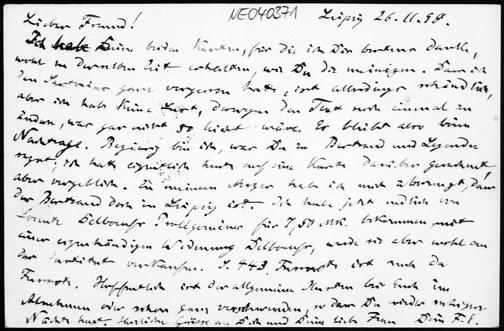 NEO40371
Lieber Freund! Leipzig 26.11.99.
Ich habe Deine beiden Karten, für die ich Dir bestens danke,
wohl in derselben Zeit erhalten, wie Du die meinigen. Dass ich
den ganz vergessen habe, ist allerdings schändlich,
aber ich habe keine Lust, deswegen den Text noch einmal zu
ändern, was gar nicht so leicht wäre. Es bleibt also beim
Nachtrage. Begierig bin ich, was Du zu Bertrand und Legendre
sagst; ich hatte eigentlich heute auf eine Karte darüber gerechnet,
aber vergeblich. Zu meinem Ärger habe ich mich überzeugt, dass
der Bertrand doch in Leipzig ist. Ich habe jetzt endlich von
Lorentz Prolegomena für 7,50 Mk. bekommen, mit
einer eigenhändigen Widmung, werde sie aber wohl an
das Institut verkaufen. S. 443, ist auch da
Hoffentlich ist der allgemeine bei Euch im
Abnehmen oder schon ganz verschwunden, so dass Du wieder
Nächte hast. Herzliche Grüsse an Dich und Deine liebe Frau Dein F.E.